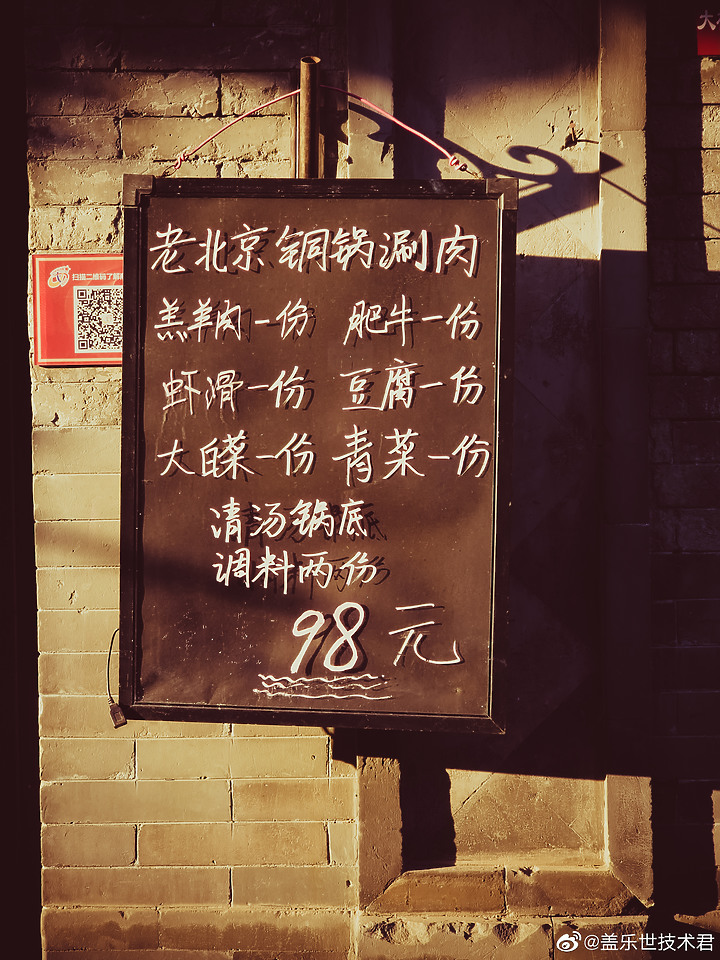 老北京铜锅涮肉
羔羊肉一份 肥牛一份
虾滑一份 豆腐一份
大白菜一份 青菜一份
清汤锅底
调料两份
98元
扫描二维码了解
大
@盖乐世技术君